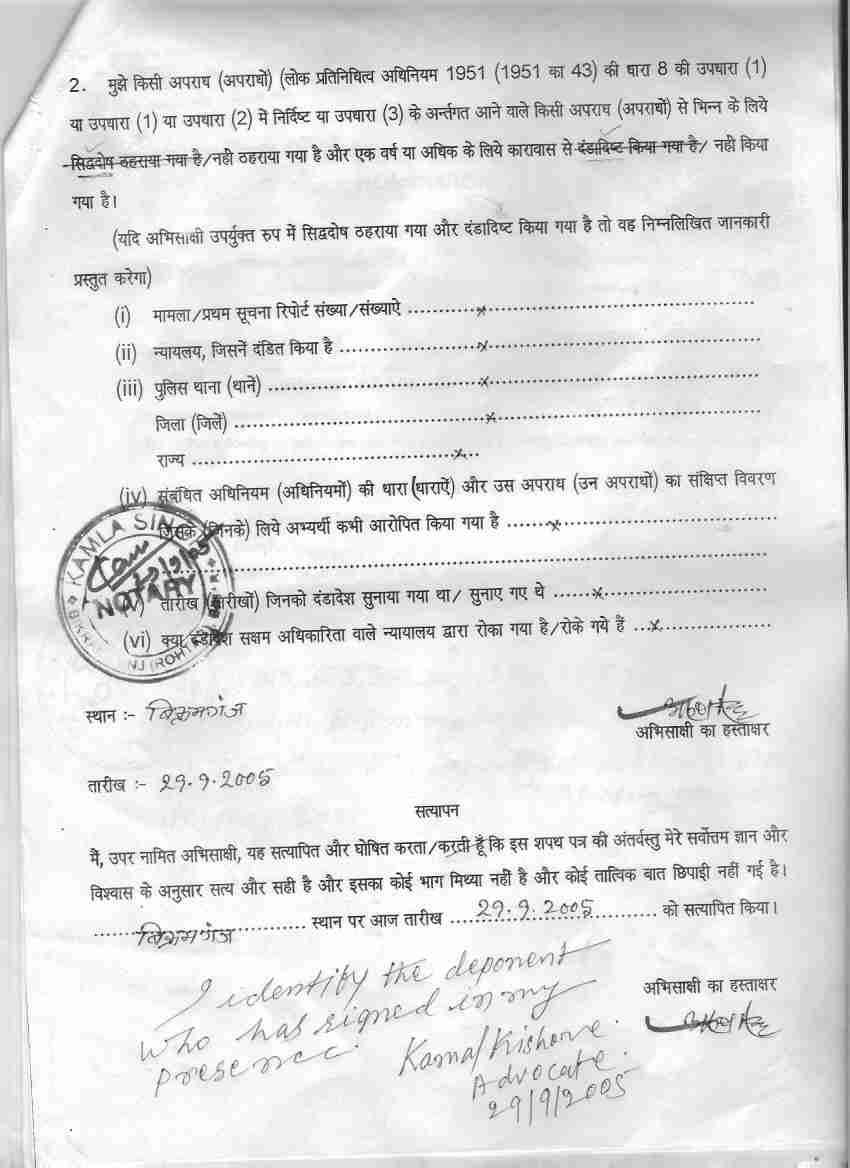 2. मुझे किसी अपराध (अपराधों) (लोक प्रतिनिधित्व अधिनियम 1951 (1951 का 43) की धारा 8 की उपधारा (1)
या उपधारा (1) या उपधारा (2) में निर्दिष्ट या उपधारा (3) के अर्न्तगत आने वाले किसी अपराध (अपराधों) से भिन्न के लिये
सिद्वदोष ठहराया गया है/नही ठहराया गया है और एक वर्ष या अधिक के लिये कारावास से दंडादिष्ट किया गया है/ नही किया
गया है।
(यदि अभिसाक्षी उपर्युक्त रुप में सिद्वदोष ठहराया गया और दंडादिष्ट किया गया है तो वह निम्नलिखित जानकारी
प्रस्तुत करेगा)
(i) मामला/प्रथम सूचना रिपोर्ट संख्या/संख्याऐ ..........x..........
(ii) न्यायलय, जिसनें दंडित किया है ..........x..........
(iii) पुलिस थाना (थानें) ..........x..........
जिला (जिलें) ..........x..........
राज्य ..........x...
(iv) संबंधित अधिनियम (अधिनियमों) की धारा (धाराऐं) और उस अपराध (उन अपराधों) का संक्षिप्त विवरण
जिसके (जिनके) लिये अभ्यर्थी कभी आरोपित किया गया है .....x..........
..........
(v) तारीख (तारीखों) जिनको दंडादेश सुनाया गया था/ सुनाए गए थे ......x..........
(vi) क्या दंडादेश सक्षम अधिकारिता वाले न्यायालय द्वारा रोका गया है/रोके गये हैं ...x..........
KAMLA SINGH
NOTARY
स्थान :- बिक्रमगंज
अभिसाक्षी का हस्ताक्षर
तारीख :- 29.9.2005
सत्यापन
मैं, उपर नामित अभिसाक्षी, यह सत्यापित और घोषित करता/करती हूँ कि इस शपथ पत्र की अंतर्वस्तु मेरे सर्वोत्तम ज्ञान और
विश्वास के अनुसार सत्य और सही है और इसका कोई भाग मिथ्या नहीं है और कोई तात्विक बात छिपाई नहीं गई है।
बिक्रमगंज .......... स्थान पर आज तारीख .....29.9.2005..... को सत्यापित किया।
अभिसाक्षी का हस्ताक्षर
I identify the deponent
who has signed in my
presence.
Kamal Kishore.
Advocate.
29/9/2005